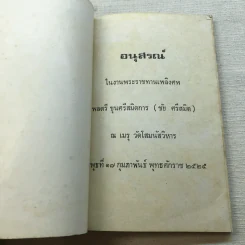 อนุสรณ์
ในงานพระราชทานเพลิงศพ
พลตรี ขุนศรีสมิตการ (ชัย ศรีสมิต)
ณ เมรุ วัดโสมนัสวิหาร
พุธที่ ๑๗ กุมภาพันธ์ พุทธศักราช ๒๕๒๕